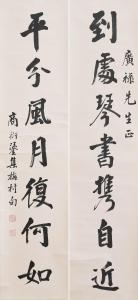 到處琴書携自近
廣祿先生正
平分風月復何如
商衍鎏集梅村句